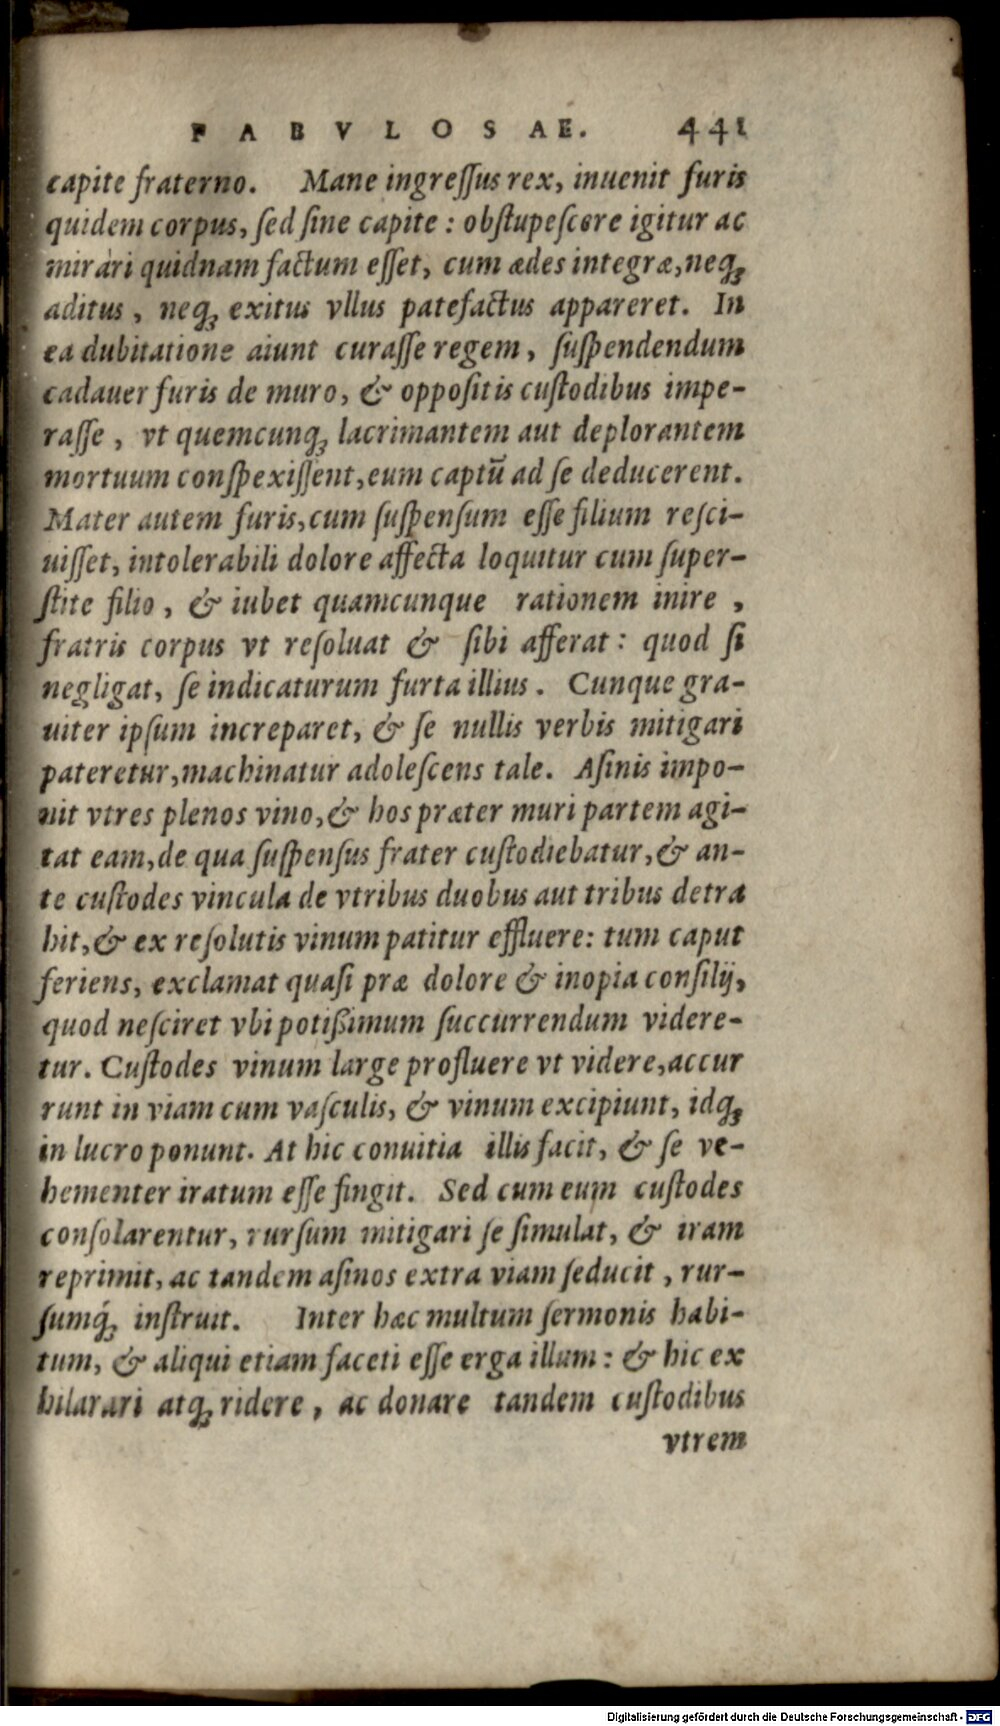 FABVLOSAE. 441
capite fraterno. Mane ingreſſus rex, inuenit furis
quidem corpus, ſed ſine capite : obſtupeſcere igitur ac
mirari quidnam factum eſſet, cum ædes integræ, neqꝫ
aditus, neqꝫ exitus vllus patefactus appareret. In
ea dubitatione aiunt curaſſe regem, ſuſpendendum
cadauer furis de muro, & oppoſitis cuſtodibus impe-
raſſe, vt quemcunqꝫ lacrimantem aut deplorantem
mortuum conſpexiſſent, eum captū ad ſe deducerent.
Mater autem furis, cum ſuſpenſum eſſe filium reſci-
uiſſet, intolerabili dolore affecta loquitur cum ſuper-
ſtite filio, & iubet quamcunque rationem inire,
fratris corpus vt reſoluat & ſibi afferat : quod ſi
negligat, ſe indicaturum furta illius. Cunque gra-
uiter ipſum increparet, & ſe nullis verbis mitigari
pateretur, machinatur adoleſcens tale. Aſinis impo-
nit vtres plenos vino, & hos præter muri partem agi-
tat eam, de qua ſuſpenſus frater cuſtodiebatur, & an-
te cuſtodes vincula de vtribus duobus aut tribus detra
hit, & ex reſolutis vinum patitur effluere: tum caput
feriens, exclamat quaſi præ dolore & inopia conſilij,
quod neſciret vbi potißimum ſuccurrendum videre-
tur. Cuſtodes vinum large profluere vt videre, accur
runt in viam cum vaſculis, & vinum excipiunt, idqꝫ
in lucro ponunt. At hic conuitia illis facit, & ſe ve-
hementer iratum eſſe fingit. Sed cum eum cuſtodes
conſolarentur, rurſum mitigari ſe ſimulat, & iram
reprimit, ac tandem aſinos extra viam ſeducit, rur-
ſumq́ꝫ inſtruit. Inter hæc multum ſermonis habi-
tum, & aliqui etiam faceti eſſe erga illum : & hic ex
hilarari atqꝫ ridere, ac donare tandem cuſtodibus
vtrem
Digitalisierung gefördert durch die Deutsche Forschungsgemeinschaft - DFG